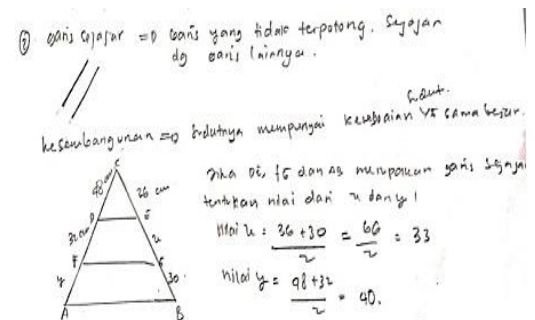 ② garis sejajar => Garis yang tidak terpotong. Sejajar
dg garis lainnya.
Kesembangunan => Sudutnya mempunyai kesesuaian sudut. yg sama besar.
Jika DE, FG dan AB merupakan garis sejajar
tentukan nilai dari x dan y!
nilai x = 36 + 30 / 2 = 66 / 2 = 33
nilai y = 48 + 32 / 2 = 40.
C
48 cm
26 cm
D
E
32 cm
x
F
G
y
30
A
B